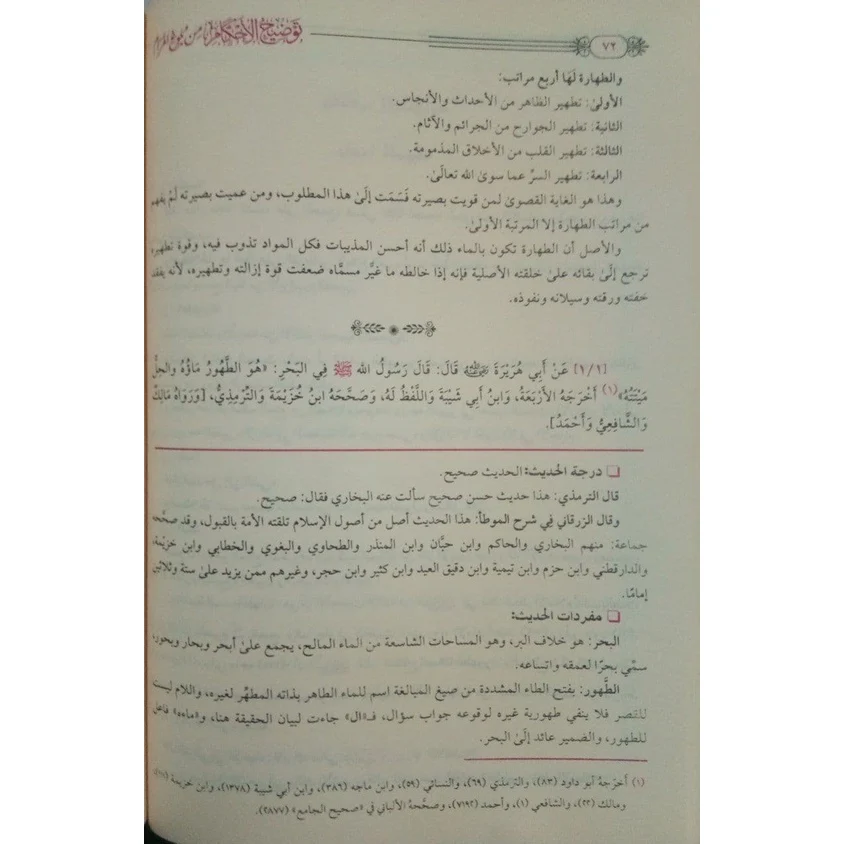 ٧٢
توضيح الأحكام من بلوغ المرام
والطهارة لَهَا أربع مراتب:
الأولىٰ: تطهير الظاهر من الأحداث والأنجاس.
الثانية: تطهير الجوارح من الجرائم والآثام.
الثالثة: تطهير القلب من الأخلاق المذمومة.
الرابعة: تطهير السرِّ عما سوىٰ الله تعالَىٰ.
وهذا هو الغاية القصوىٰ لمن قويت بصيرته فَسَمَت إلَىٰ هذا المطلوب، ومن عميت بصيرته لَمْ يفهم
من مراتب الطهارة إلا المرتبة الأولىٰ.
والأصل أن الطهارة تكون بالماء ذلك أنه أحسن المذيبات فكل المواد تذوب فيه، وقوة تطهيره
ترجع إلَىٰ بقائه علىٰ خلقته الأصلية فإنه إذا خالطه ما غيَّر مسمَّاه ضعفت قوة إزالته وتطهيره، لأنه يفقد
خفته ورقته وسيلانه ونفوذه.
[١/١] عَنْ أَبِي هُرَيْرَةَ رضي الله عنه قَالَ: قَالَ رَسُولُ الله ﷺ فِي البَحْرِ: «هُوَ الطَّهُورُ مَاؤُهُ والحِلُّ
مَيْتَتُهُ»(١) أَخْرَجَهُ الأَرْبَعَةُ، وَابنُ أَبِي شَيْبَةَ وَاللَّفْظُ لَهُ، وَصَحَّحَهُ ابنُ خُزَيْمَةَ وَالتِّرْمِذِيُّ، [وَرَوَاهُ مَالِكٌ
وَالشَّافِعِيُّ وَأَحْمَدُ].
❑ درجة الحديث: الحديث صحيح.
قال الترمذي: هذا حديث حسن صحيح سألت عنه البخاري فقال: صحيح.
وقال الزرقاني فِي شرح الموطأ: هذا الحديث أصل من أصول الإسلام تلقته الأمة بالقبول، وقد صحَّحه
جماعة: منهم البخاري والحاكم وابن حبَّان وابن المنذر والطحاوي والبغوي والخطابي وابن خزيمة،
والدارقطني وابن حزم وابن تيمية وابن دقيق العيد وابن كثير وابن حجر، وغيرهم ممن يزيد علىٰ ستة وثلاثين
إمامًا.
❑ مفردات الحديث:
البحر: هو خلاف البر، وهو المساحات الشاسعة من الماء المالح، يجمع علىٰ أبحر وبحار وبحور،
سمِّي بحرًا لعمقه واتساعه.
الطَّهور: بفتح الطاء المشددة من صيغ المبالغة اسم للماء الطاهر بذاته المطهِّر لغيره، واللام ليست
للقصر فلا ينفي طهورية غيره لوقوعه جواب سؤال، فـ«ال» جاءت لبيان الحقيقة هنا، و«ماءه» فاعل
للطهور، والضمير عائد إلَىٰ البحر.
(١) أَخرَجهُ أبو داود (٨٣)، والترمذي (٦٩)، والنسائي (٥٩)، وابن ماجه (٣٨٦)، وابن أبي شيبة (١٣٧٨)، وابن خزيمة (١١١)،
ومالك (٢٢)، والشافعي (١)، وأحمد (٧١٩٢)، وصحَّحهُ الألباني في «صحيح الجامع» (٢٨٧٧).